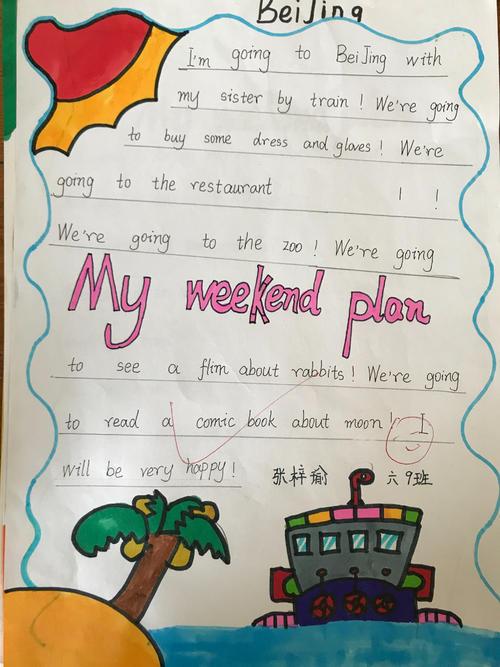 BeiJing
I'm going to BeiJing with
my sister by train ! We're going
to buy some dress and gloves ! We're
going to the restaurant ! !
We're going to the zoo ! We're going
My weekend plan
to see a flim about rabbits ! We're going
to read a comic book about moon ! I
will be very happy !
张梓瑜 六9班